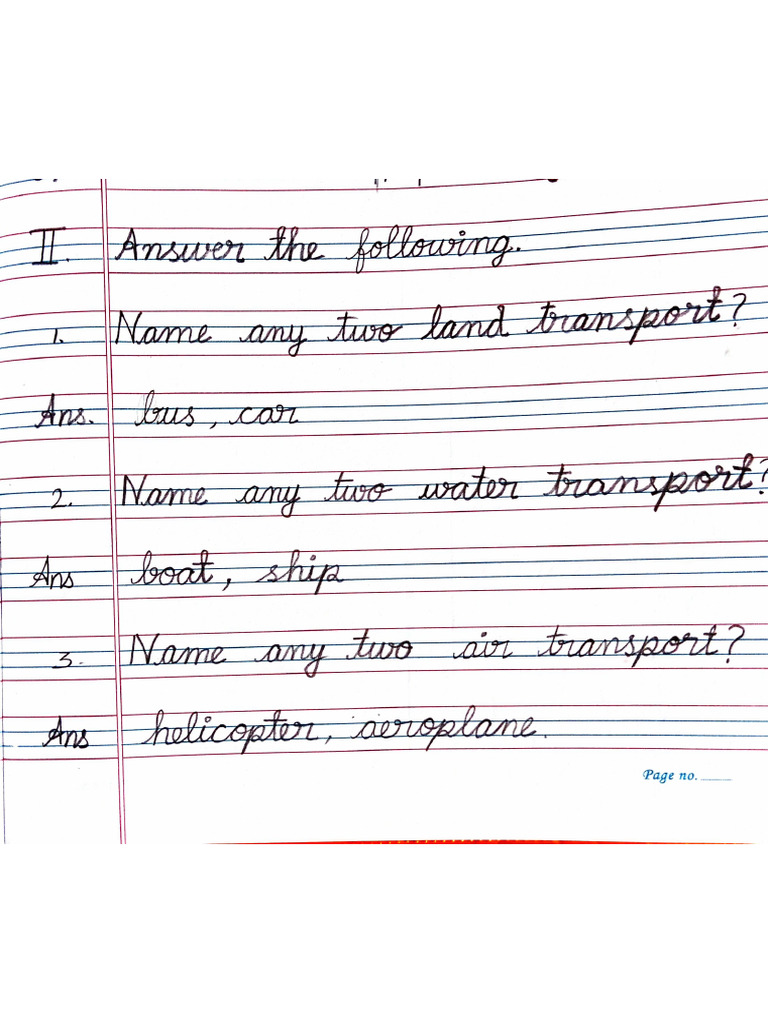 II. Answer the following.
1. Name any two land transport?
Ans. bus, car
2. Name any two water transport?
Ans boat, ship
3. Name any two air transport?
Ans helicopter, aeroplane.
Page no.